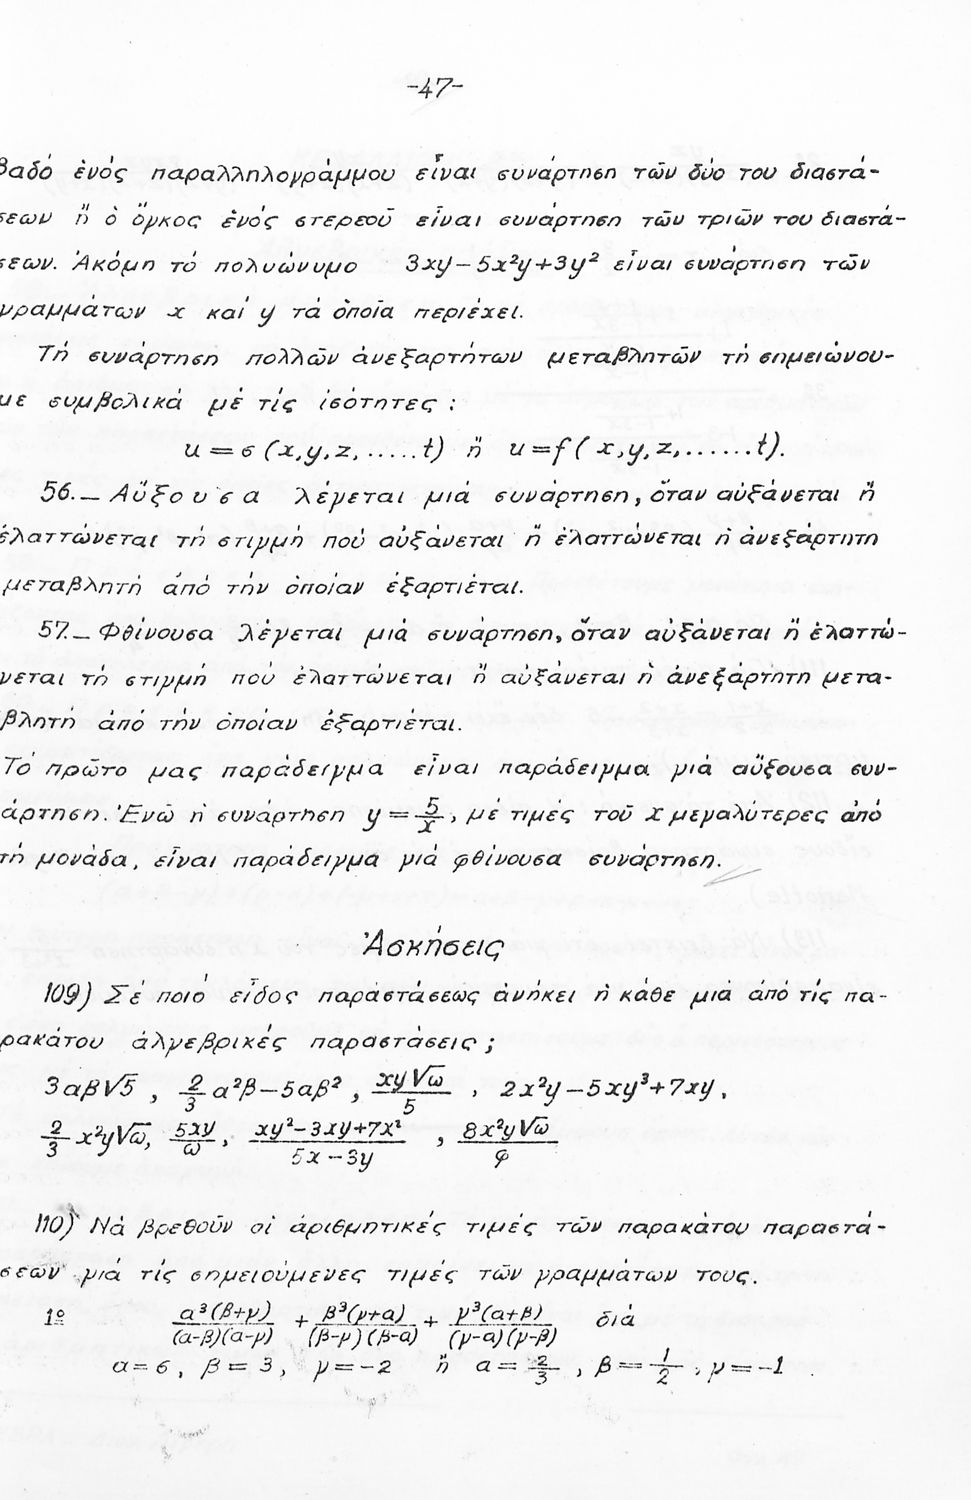 -47-
βαδό ἑνός παραλληλογράμμου εἶναι συνάρτηση τῶν δύο του διαστά-
σεων ἤ ὁ ὄγκος ἑνός στερεοῦ εἶναι συνάρτηση τῶν τριῶν του διαστά-
σεων. Ἀκόμη τό πολυώνυμο 3xy-5x²y+3y² εἶναι συνάρτηση τῶν
γραμμάτων x καί y τά ὁποῖα περιέχει.
Τή συνάρτηση πολλῶν ἀνεξαρτήτων μεταβλητῶν τή σημειώνου-
με συμβολικά μέ τίς ἰσότητες :
u = σ (x,y,z, .....t) ἤ u=f( x,y,z,......t).
56._ Αὔξουσα λέγεται μιά συνάρτηση, ὅταν αὐξάνεται ἤ
ἐλαττώνεται τή στιγμή πού αὐξάνεται ἤ ἐλαττώνεται ἡ ἀνεξάρτητη
μεταβλητή ἀπό τήν ὁποίαν ἐξαρτιέται.
57._ Φθίνουσα λέγεται μιά συνάρτηση, ὅταν αὐξάνεται ἤ ἐλαττώ-
νεται τή στιγμή πού ἐλαττώνεται ἤ αὐξάνεται ἡ ἀνεξάρτητη μετα-
βλητή ἀπό τήν ὁποίαν ἐξαρτιέται.
Τό πρῶτο μας παράδειγμα εἶναι παράδειγμα γιά αὔξουσα συν-
άρτηση. Ἐνῶ ἡ συνάρτηση y = 5/x, μέ τιμές τοῦ x μεγαλύτερες ἀπό
τή μονάδα, εἶναι παράδειγμα γιά φθίνουσα συνάρτηση.
Ἀσκήσεις
109) Σέ ποιό εἶδος παραστάσεως ἀνήκει ἡ κάθε μιά ἀπό τίς πα-
ρακάτου ἀλγεβρικές παραστάσεις ;
3αβ√5 , 2/3 α²β-5αβ² , xy√ω/5 , 2x²y-5xy³+7xy,
2/3 x²y√ω, 5xy/ω , (xy²-3xy+7x²)/(5x-3y) , 8x²y√ω/φ
110) Νά βρεθοῦν οἱ ἀριθμητικές τιμές τῶν παρακάτου παραστά-
σεων γιά τίς σημειούμενες τιμές τῶν γραμμάτων τους.
1º α³(β+γ)/(α-β)(α-γ) + β³(γ+α)/(β-γ)(β-α) + γ³(α+β)/(γ-α)(γ-β) διά
α=6, β=3, γ=-2 ἤ α=2/3, β=-1/2, γ=-1